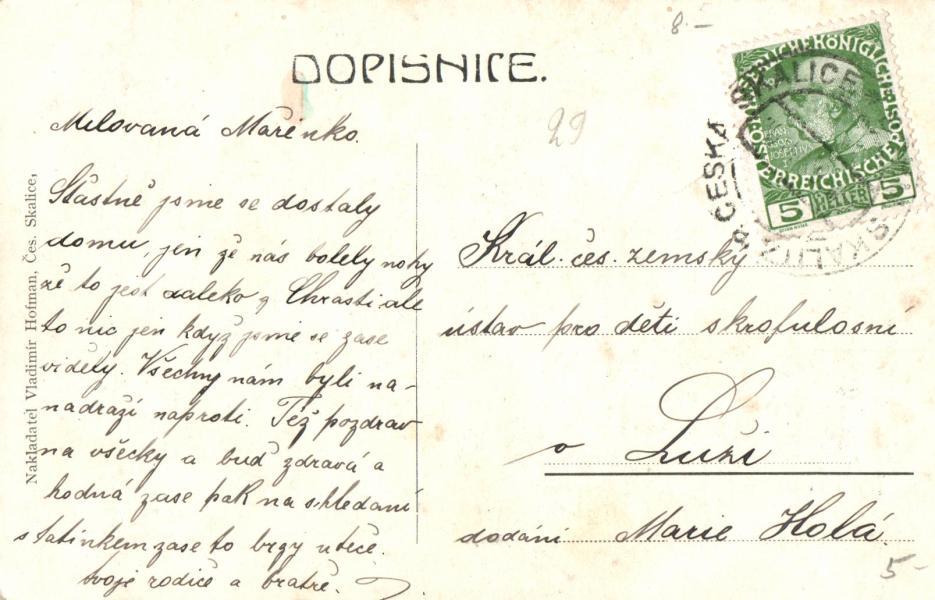 8.–
DOPISNICE.
29
Milovaná Mařenko.
Štastně jsme se dostaly
domu, jen že nás bolely nohy
že to jest daleko z Chrasti ale
to nic jen když jsme se zase
viděly. Všechny nám byli na-
nadraží naproti. Též pozdrav
na všecky a buď zdravá a
hodná zase pak na shledaní
s tatinkem zase to brzy uteče.
tvoje rodiče a bratře.
Nakladatel Vladimír Hofman, Čes. Skalice,
KAISERLICHE KÖNIGLICHE
ÖSTERREICHISCHE POST
5 HELLER 5
ČESKÁ SKALICE
Král. čes. zemský
ústav pro děti skrofulosní
v Luži
dodání Marie Holá.
5–